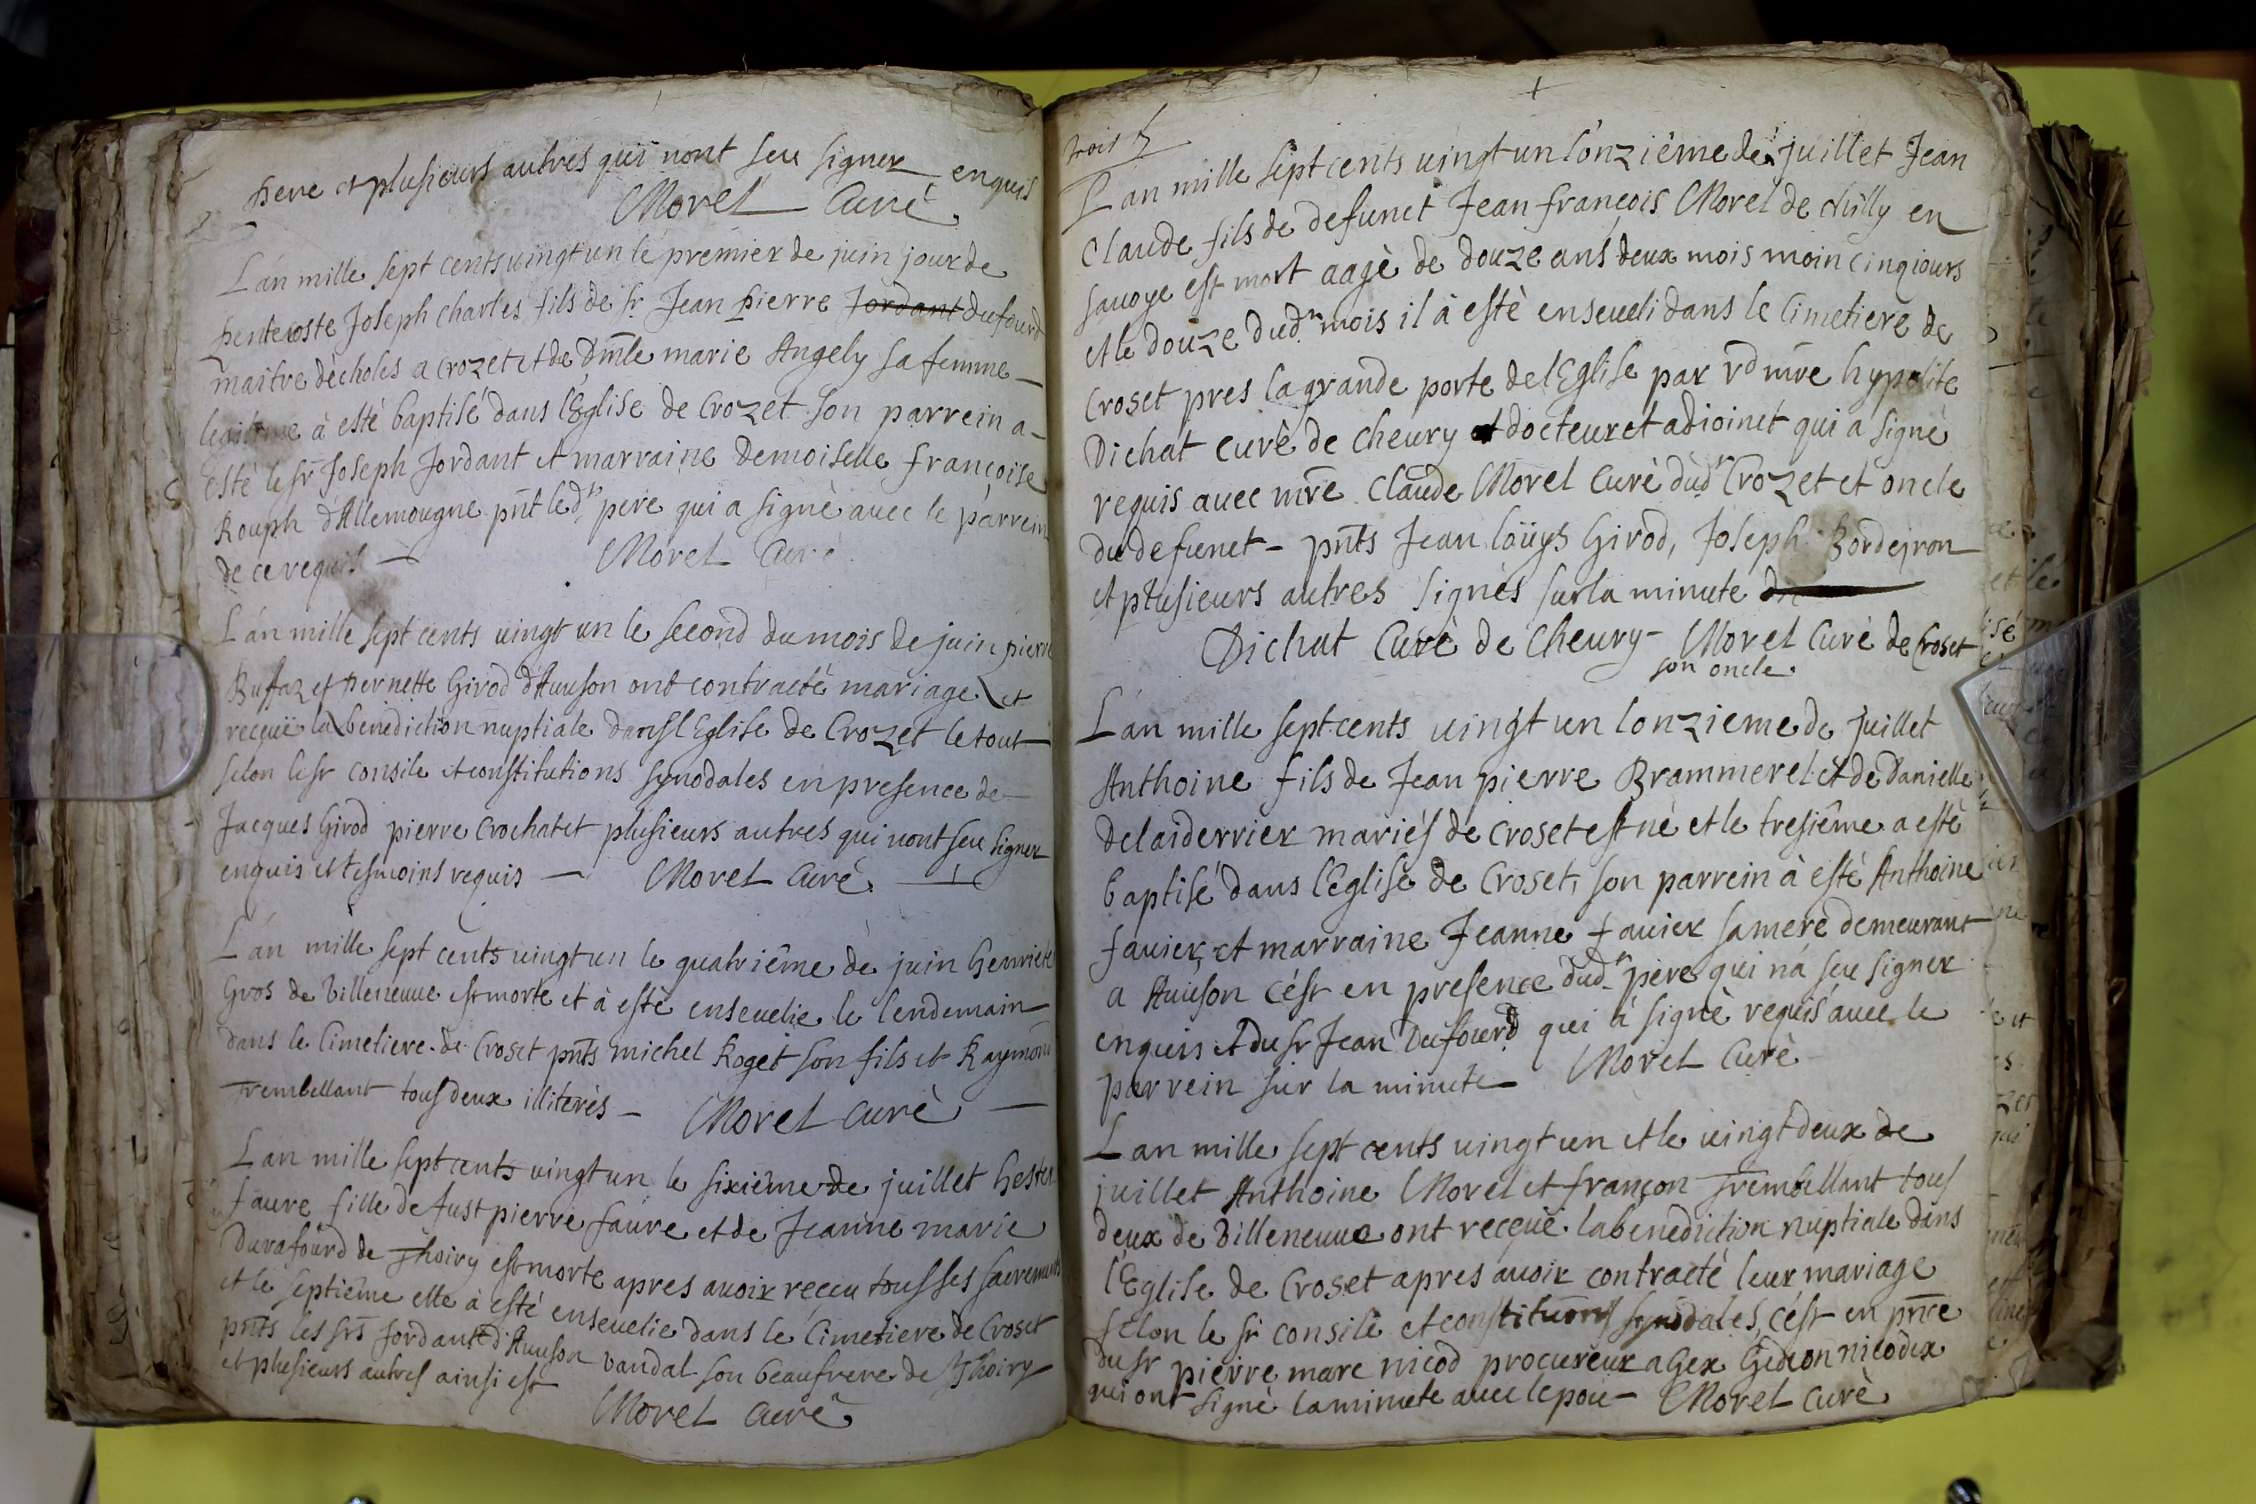 pere et plusieurs autres qui nont sçu signer enquis
Morel Curè
L'an mille sept cents vingt un le premier de juin jour de
pentecoste Joseph charles fils de sr Jean pierre Jordant dufourd
maitre dècholes a crozet et de Dmle marie Angely sa femme
legitime à estè baptisé dans l'Eglise de Crozet son parrein a
estè le sr Joseph Jordant et marraine Demoiselle françoise
Rouph d'Allemougne pnt led.t pere qui a signè avec le parrein
de ce requis — Morel Curè
L'an mille sept cents vingt un le second du mois de juin pierre
Buffaz et pernette Girod d'Avuson ont contractè mariage et
reçeüe la benediction nuptiale dans l'Eglise de Crozet le tout
selon le st consile et constitutions synodales en presence de
Jacques Girod pierre Crochat et plusieurs autres qui nont sçu signer
enquis et tesmoins requis — Morel Curè
L'an mille sept cents vingt un le quatriême de juin henriete
Gros de Villeneuve est morte et à estè ensevelie le lendemain
dans le Cimetiere de Croset pnts michel Roget son fils et Raymond
Trembellant tous deux illiterès — Morel Curè
L'an mille sept cents vingt un le sixiême de juillet hester
faure fille de Just pierre faure et de Jeanne marie
Durafourd de Thoiry est morte apres avoir reçeu tous ses sacrements
et le septiême elle à esté ensevelie dans le Cimetiere de Croset
pnts les srs Jordant d'Avuson vandal son beaufrere de Thoiry
et plusieurs autres ainsi est
Morel Curè
trois
L'an mille sept cents vingt un lonziême de juillet Jean
Claude fils de defunct Jean françois Morel de chilly en
savoye est mort aagè de douze ans deux mois moin cinq jours
et le douze dud.t mois il à estè enseveli dans le Cimetiere de
Croset pres la grande porte de l'Eglise par rd mre hypolite
Dichat curè de chevry et docteur et adjoinct qui a signè
requis avec mre Claude Morel Curè dud.t Crozet et oncle
du defunct — pnts Jean loüys Girod, Joseph Bordejron
et plusieurs autres signès sur la minute
Dichat Curè de Chevry — Morel Curè de Croset
son oncle
L'an mille sept cents vingt un lonzieme de juillet
Anthoine fils de Jean pierre Brammerel et de Danielle
Delaiderrier mariés de Croset est nè et le tresiême a estè
baptisé dans l'Eglise de Croset, son parrein à esté Anthoine
favier, et marraine Jeanne favier sa mere demeurant
a Avuson c'est en presence dud.t père qui n'a sçu signer
enquis et du sr Jean Dufourd qui à signè requis avec le
parrein sur la minute — Morel Curè
L'an mille sept cents vingt un et le vingt deux de
juillet Anthoine Morel et françon Trembellant tous
deux de Villeneuve ont reçeüe la benediction nuptiale dans
l'Eglise de Croset apres avoir contractè leur mariage
selon le st consile et constitutions synodales, c'est en pnce
du sr pierre marc nicod procureur a Gex Gedeon nicodex
qui ont signè la minute avec lepou — Morel Curè